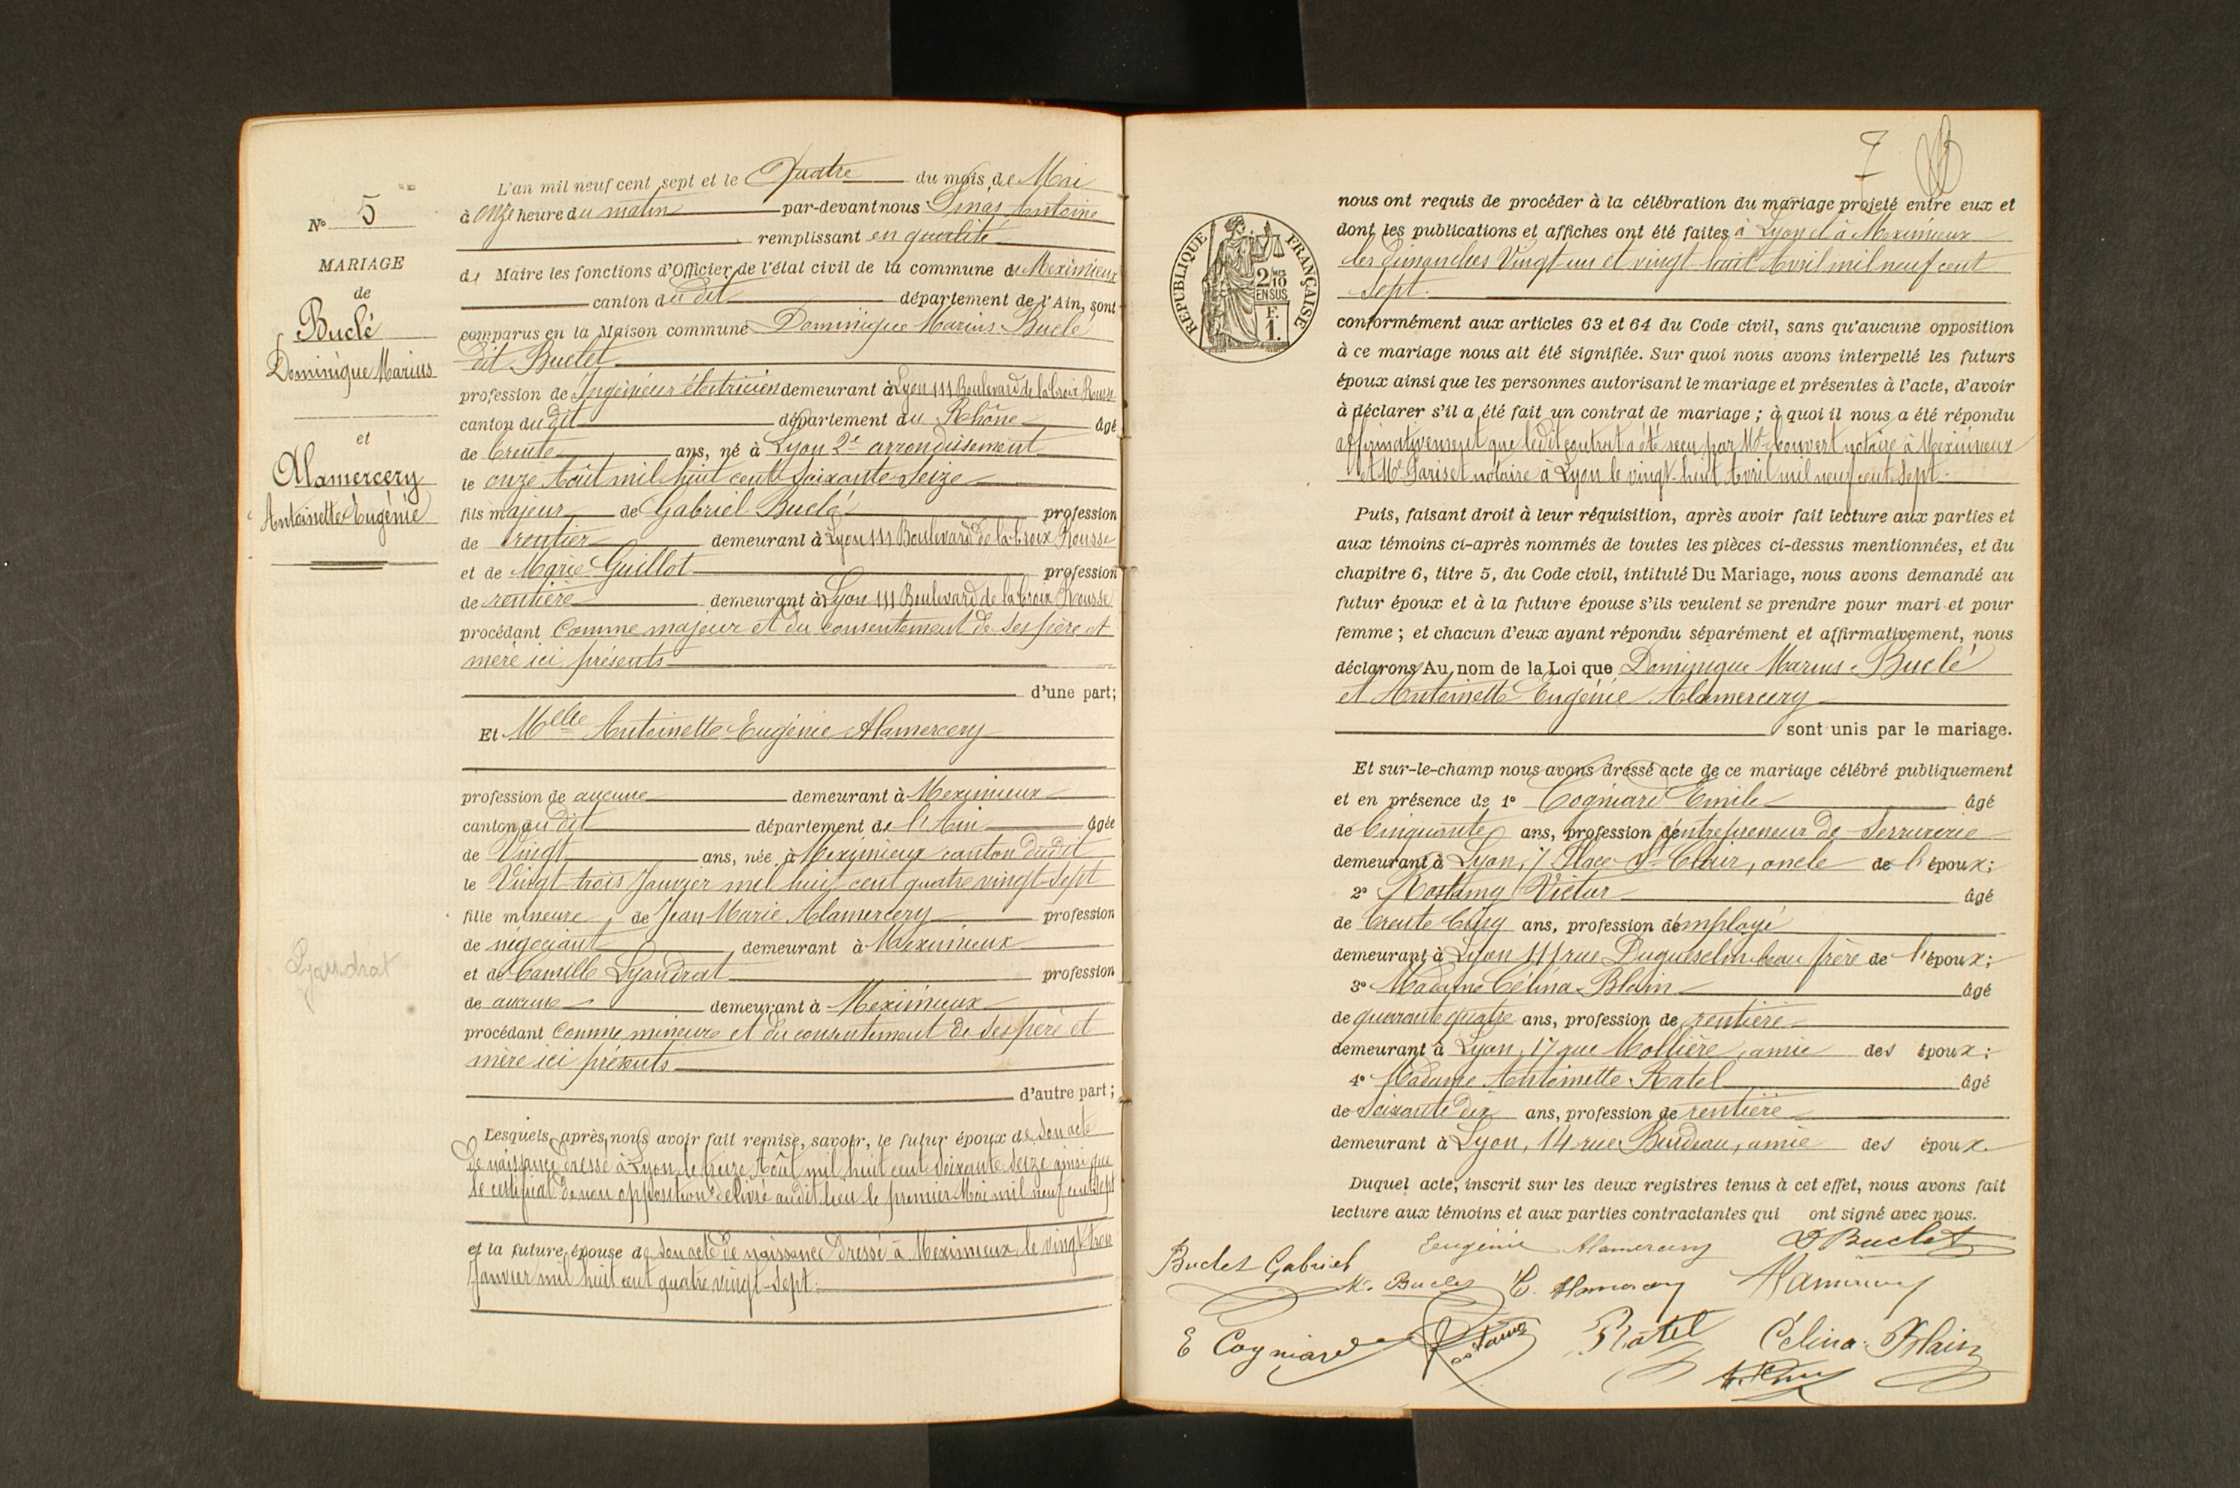 N° 5
MARIAGE
de
Buclé
Dominique Marius
et
Alamercery
Antoinette Eugénie
Lyaudrat
L'an mil neuf cent sept et le Quatre du mois de Mai
à onze heure du matin par-devant nous Antoine
remplissant en qualité
de Maire les fonctions d'Officier de l'état civil de la commune de Meximieux
canton du dit département de l'Ain, sont
comparus en la Maison commune Dominique Marius Buclé
dit Buclet
profession de Ingénieur électricien demeurant à Lyon 111 Boulevard de la Croix Rousse
canton du dit département du Rhône âgé
de trente ans, né à Lyon 2e arrondissement
le onze Août mil huit cent soixante seize
fils majeur de Gabriel Buclé profession
de rentier demeurant à Lyon 111 Boulevard de la Croix Rousse
et de Marie Guillot profession
de rentière demeurant à Lyon 111 Boulevard de la Croix Rousse
procédant comme majeur et du consentement de ses père et
mère ici présents
d'une part;
Et Melle Antoinette Eugénie Alamercery
profession de aucune demeurant à Meximieux
canton du dit département de l'Ain âgée
de Vingt ans, née à Meximieux canton dudit
le Vingt-trois Janvier mil huit cent quatre vingt-sept
fille mineure de Jean Marie Alamercery profession
de négociant demeurant à Meximieux
et de Camille Lyaudrat profession
de aucune demeurant à Meximieux
procédant comme mineure et du consentement de ses père et
mère ici présents
d'autre part;
Lesquels, après nous avoir fait remise, savoir, le futur époux de son acte
de naissance dressé à Lyon le treize Août mil huit cent soixante seize ainsi que
le certificat de non opposition délivré audit lieu le premier Mai mil neuf cent sept
et la future épouse de son acte de naissance dressé à Meximieux le vingt trois
Janvier mil huit cent quatre vingt-sept.
7
RÉPUBLIQUE FRANÇAISE
2/10
EN SUS
F.
1.
nous ont requis de procéder à la célébration du mariage projeté entre eux et
dont les publications et affiches ont été faites à Lyon et à Meximieux
les dimanches Vingt un et vingt-huit Avril mil neuf cent
sept.
conformément aux articles 63 et 64 du Code civil, sans qu'aucune opposition
à ce mariage nous ait été signifiée. Sur quoi nous avons interpellé les futurs
époux ainsi que les personnes autorisant le mariage et présentes à l'acte, d'avoir
à déclarer s'il a été fait un contrat de mariage; à quoi il nous a été répondu
affirmativement que ledit contrat a été reçu par Me notaire à Meximieux
et Me Pariset notaire à Lyon le vingt-huit Avril mil neuf cent sept.
Puis, faisant droit à leur réquisition, après avoir fait lecture aux parties et
aux témoins ci-après nommés de toutes les pièces ci-dessus mentionnées, et du
chapitre 6, titre 5, du Code civil, intitulé Du Mariage, nous avons demandé au
futur époux et à la future épouse s'ils veulent se prendre pour mari et pour
femme; et chacun d'eux ayant répondu séparément et affirmativement, nous
déclarons Au nom de la Loi que Dominique Marius Buclé
et Antoinette Eugénie Alamercery
sont unis par le mariage.
Et sur-le-champ nous avons dressé acte de ce mariage célébré publiquement
et en présence de 1° Cogniard Emile âgé
de Cinquante ans, profession d'entrepreneur de Serrurerie
demeurant à Lyon, 7 Place St Clair, oncle de l'époux;
2° Rostaing Victor âgé
de trente cinq ans, profession d'employé
demeurant à Lyon 111 rue Duguesclin beau frère de l'époux;
3° Madame Célina Blain âgé
de quarante quatre ans, profession de rentière
demeurant à Lyon, 17 rue Mollière, amie des époux;
4° Madame Antoinette Ratel âgé
de Soixante dix ans, profession de rentière
demeurant à Lyon, 14 rue Burdeau, amie des époux.
Duquel acte, inscrit sur les deux registres tenus à cet effet, nous avons fait
lecture aux témoins et aux parties contractantes qui ont signé avec nous.
Eugénie Alamercery D Buclet
Buclet Gabriel
M. Buclet C. Alamercery Alamercery
E Cogniard Rostaing Ratel Célina Blain